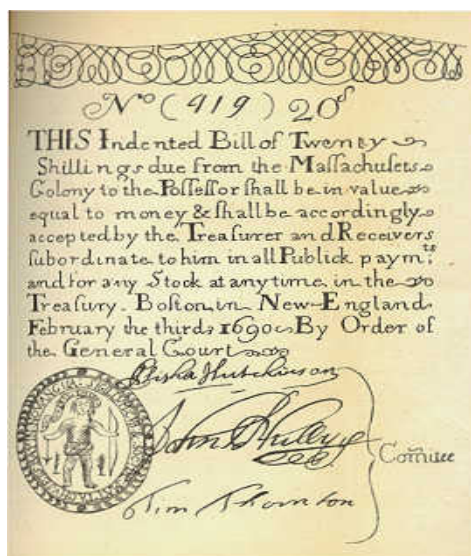 No (919) 20s
THIS Indented Bill of Twenty
Shillings due from the Maſſachuſets
Colony to the Poſſeſſor ſhall be in value
equal to money & ſhall be accordingly
accepted by the Treaſurer and Receivers
ſubordinate to him in all Publick paymts:
and for any Stock at any time in the
Treaſury. Boſton in New-England
February the third 1690. By Order of
the General Court
Elisha Hutchinson
Tim Thornton
Com̃itee